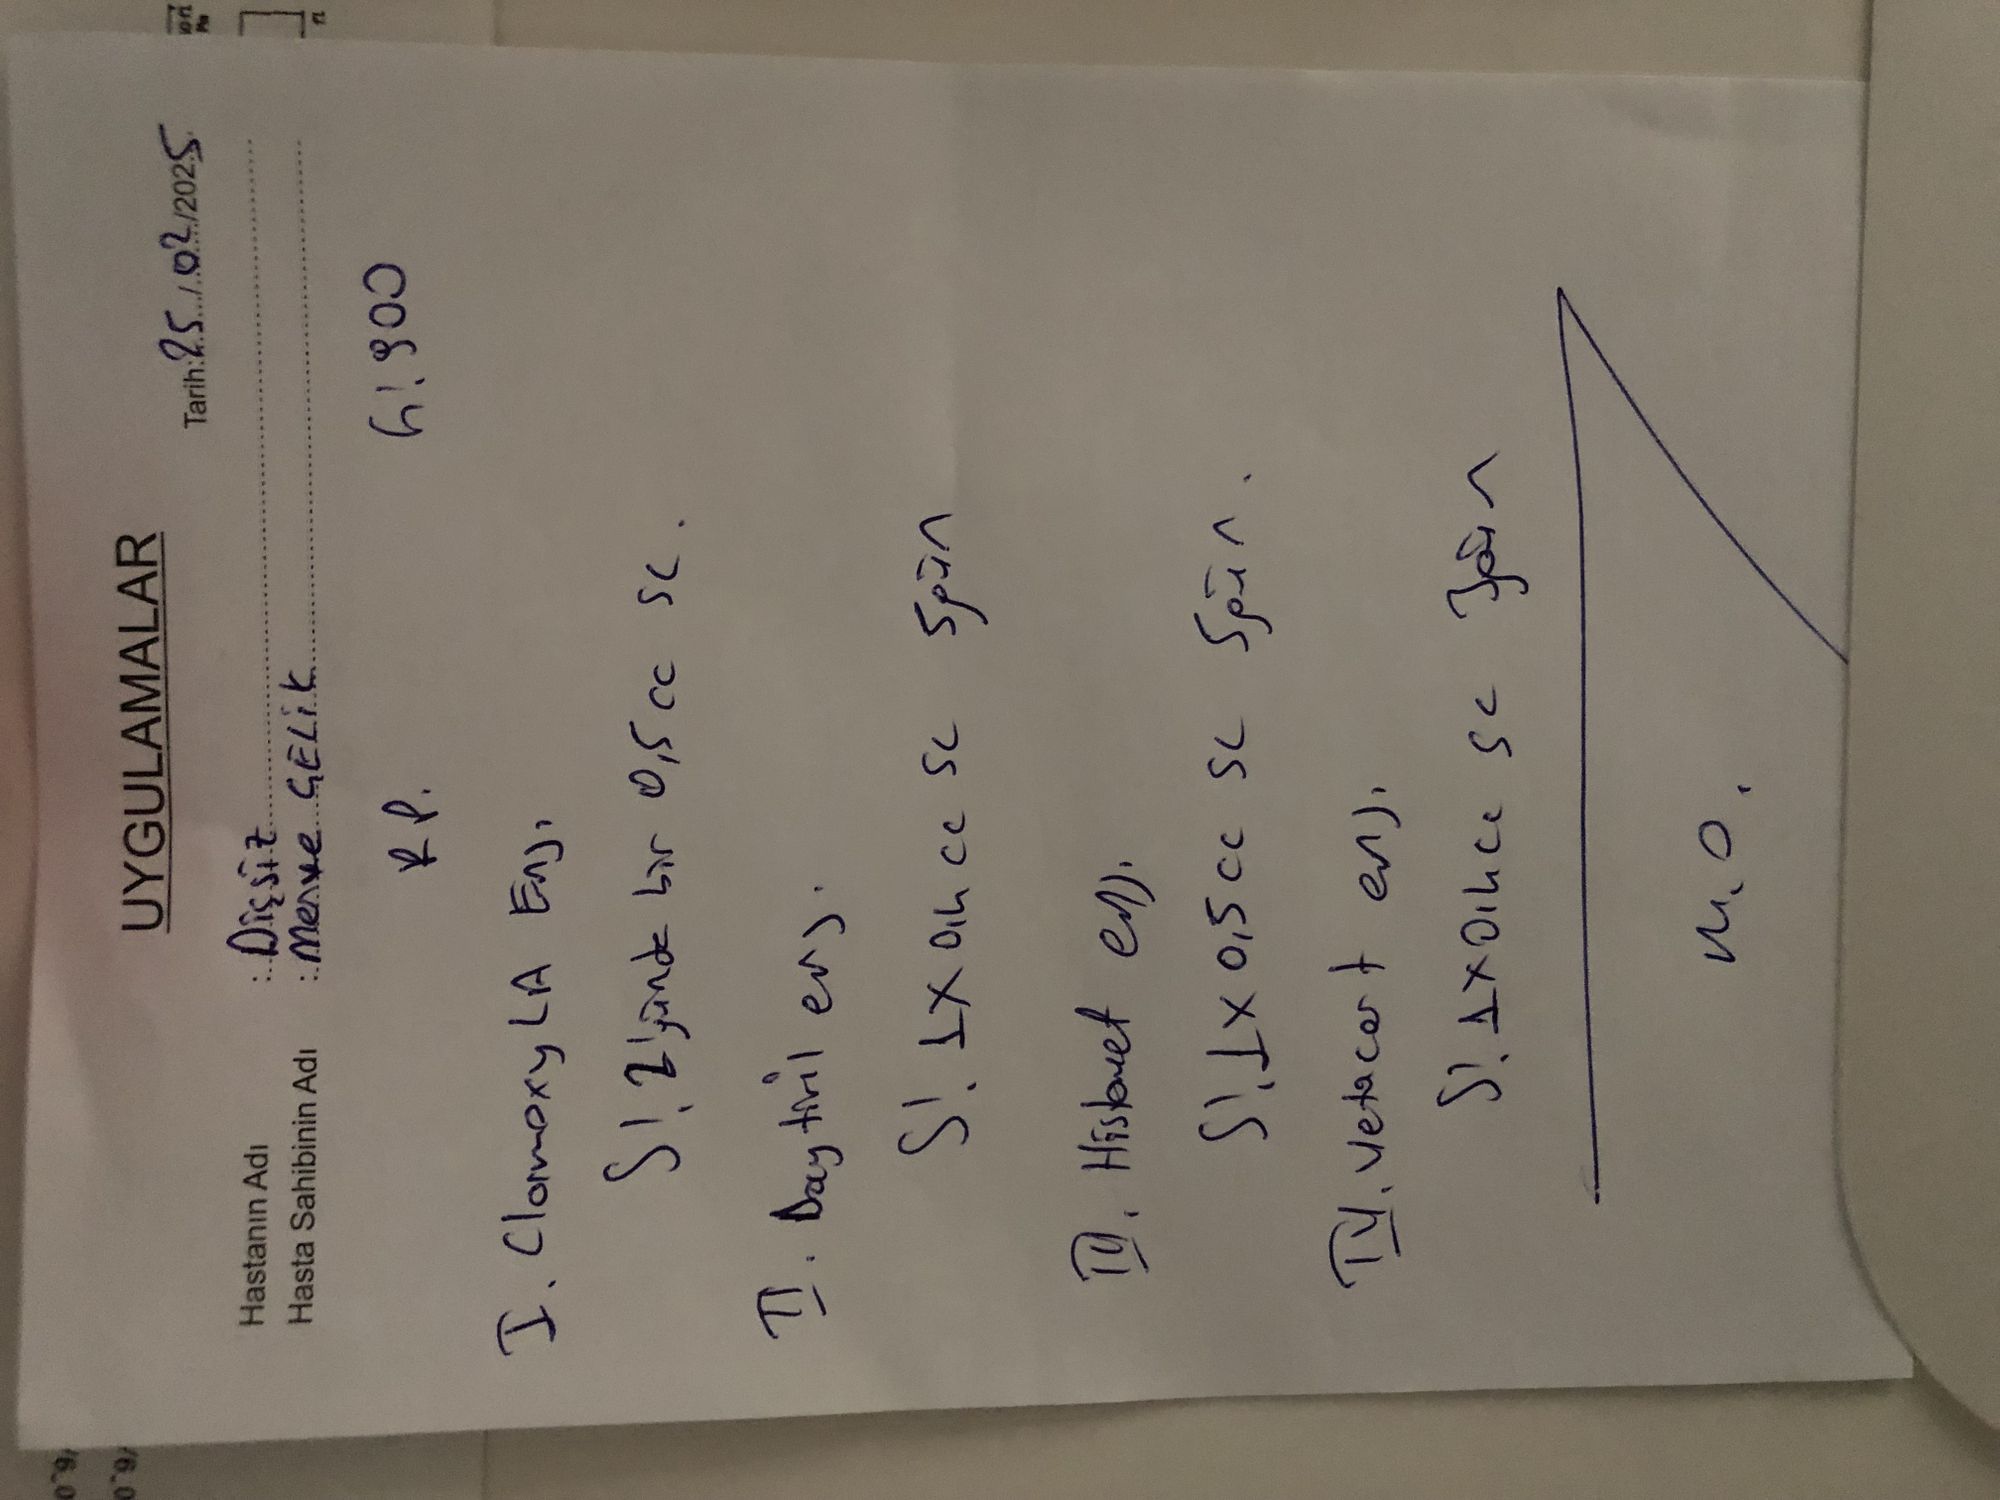 UYGULAMALAR
Tarih: 25./.02./2025
Hastanın Adı : Dişsiz
Hasta Sahibinin Adı : Merve ÇELİK
RP. 4!.900
I. Clomoxyl LA Enj.
S!. 2 günde bir 0,5 cc sc.
II. Baytiril enj.
S!. 1x0,4 cc sc 5gün
III. Histavet enj.
S!. 1x0,5 cc sc 5gün.
IV. vetacort enj.
S!. 1x0,4 cc sc 3gün
M.O.